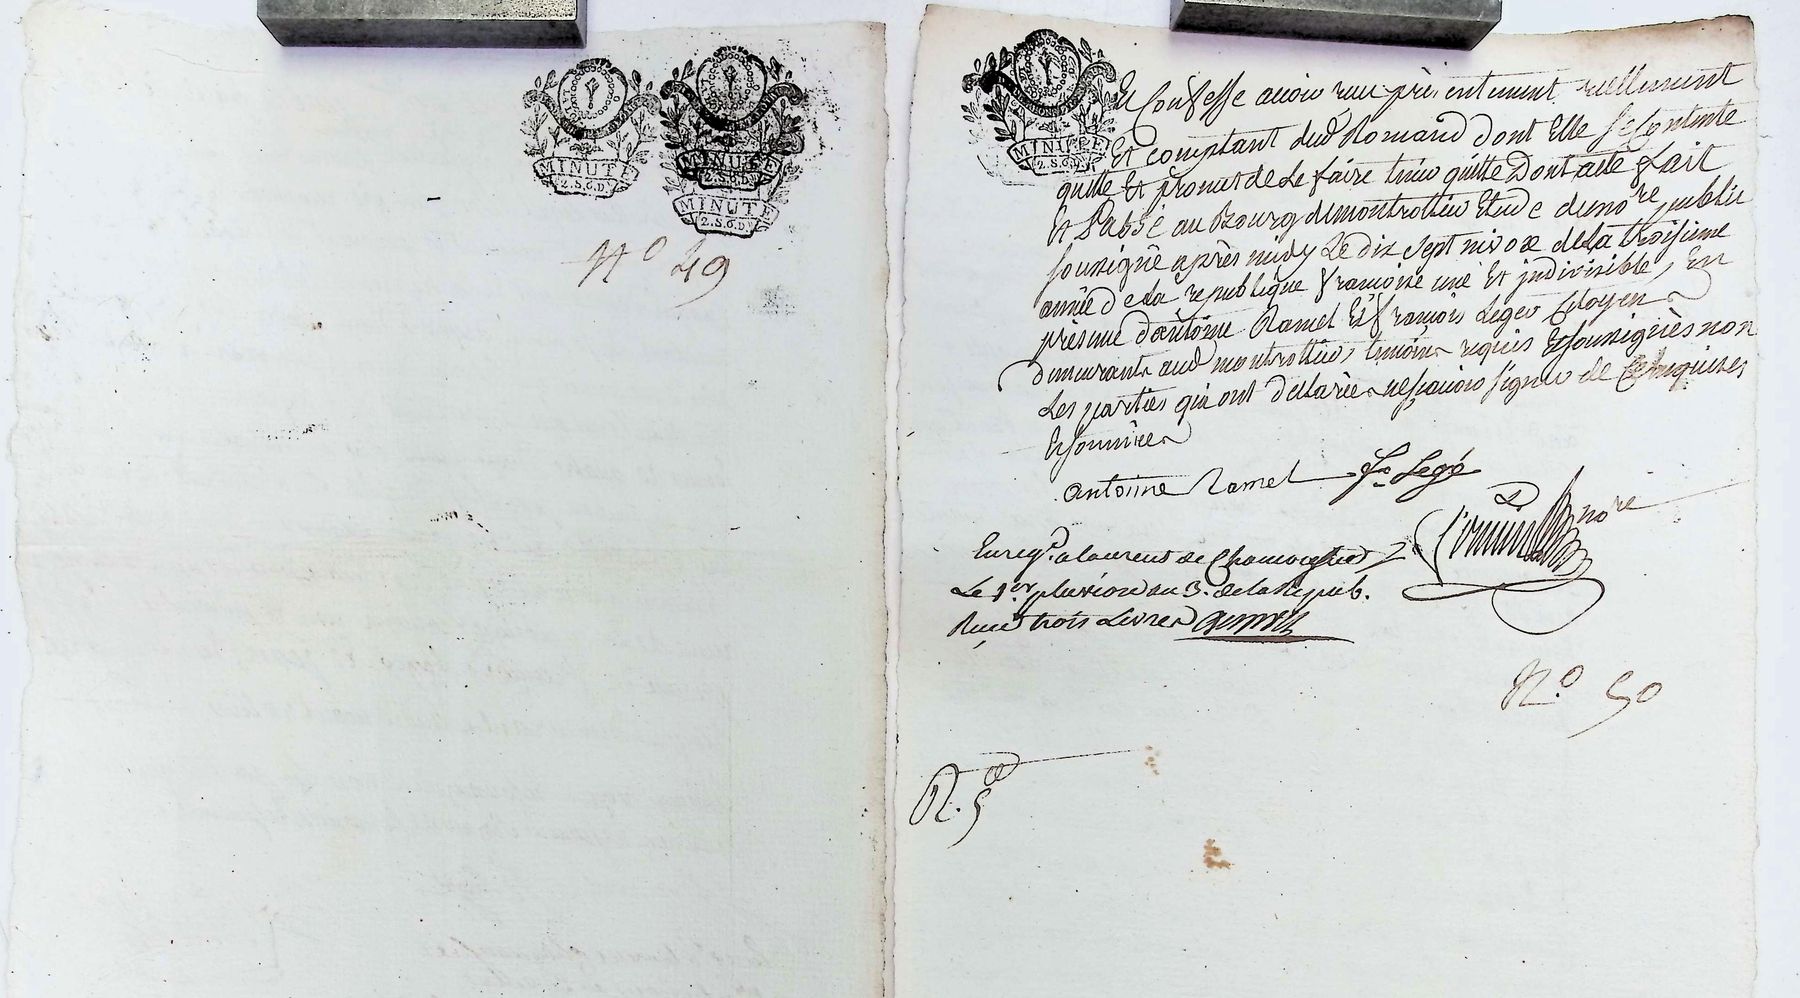 MINUTE
2.S.6.D.
MINUTE
2.S.6.D.
MINUTE
2.S.6.D.
N° 49
MINUTE
2.S.6.D.
Et Confesse avoir reçu présentement réellement
Et comptant dud Romand dont Elle se Contente
quitte Et promet de Le faire tenir quitte Dont acte fait
Et Passé au Bourg de montrottier Etude du no.re public
soussigné après midy Le dix sept nivose de la troisieme
année de La république françoise une Et indivisible, En
présence d'antoine Ramel Et françois Leger Citoyens
demeurants aud montrottier, temoins requis Et soussignès non
Les parties qui ont déclarées ne sçavoir signer de Ce Enquises
Et sommées
antoine Ramel fr. Legé
no.re
Enreg.d a laurent de Chamousset
Le 1.er pluviose an 3.e de la Repub.
Reçu trois Livres
N.° 50
R. 5